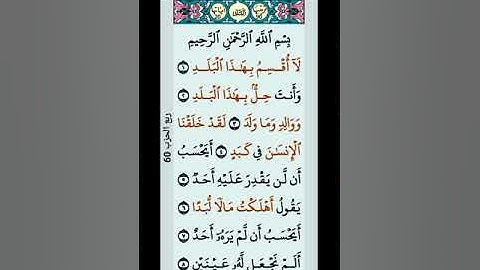 بِسْمِ اللَّهِ الرَّحْمَٰنِ الرَّحِيمِ
لَآ أُقْسِمُ بِهَٰذَا ٱلْبَلَدِ ١
وَأَنتَ حِلٌّۢ بِهَٰذَا ٱلْبَلَدِ ٢
وَوَالِدٍ وَمَا وَلَدَ ٣ لَقَدْ خَلَقْنَا
ٱلْإِنسَٰنَ فِى كَبَدٍ ٤ أَيَحْسَبُ
أَن لَّن يَقْدِرَ عَلَيْهِ أَحَدٌ ٥
يَقُولُ أَهْلَكْتُ مَالًا لُّبَدًا ٦
أَيَحْسَبُ أَن لَّمْ يَرَهُۥٓ أَحَدٌ ٧
أَلَمْ نَجْعَل لَّهُۥ عَيْنَيْنِ ٨
ربع الحزب 60